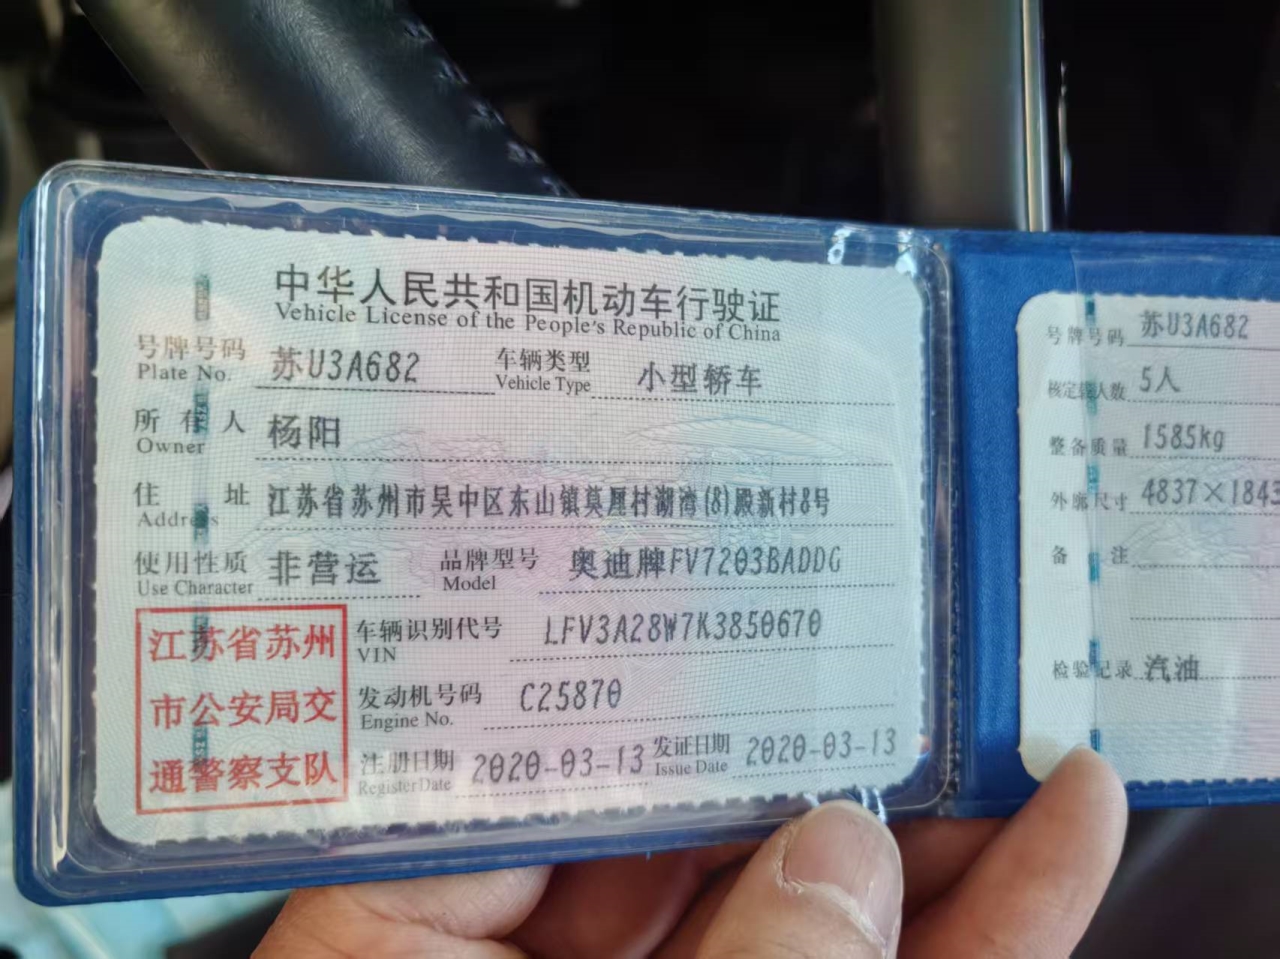 中华人民共和国机动车行驶证
Vehicle License of the People's Republic of China
号牌号码 苏U3A682 车辆类型 小型轿车
Plate No. Vehicle Type
所有人 杨阳
Owner
住址 江苏省苏州市吴中区东山镇莫厘村湖湾(8)殿新村8号
Address
使用性质 非营运 品牌型号 奥迪牌FV7203BADDG
Use Character Model
江苏省苏州
市公安局交
通警察支队
车辆识别代号 LFV3A28W7K3850670
VIN
发动机号码 C25870
Engine No.
注册日期 2020-03-13 发证日期 2020-03-13
Register Date Issue Date
号牌号码 苏U3A682
核定载人数 5人
整备质量 1585kg
外廓尺寸 4837×1843
备注
检验记录 汽油